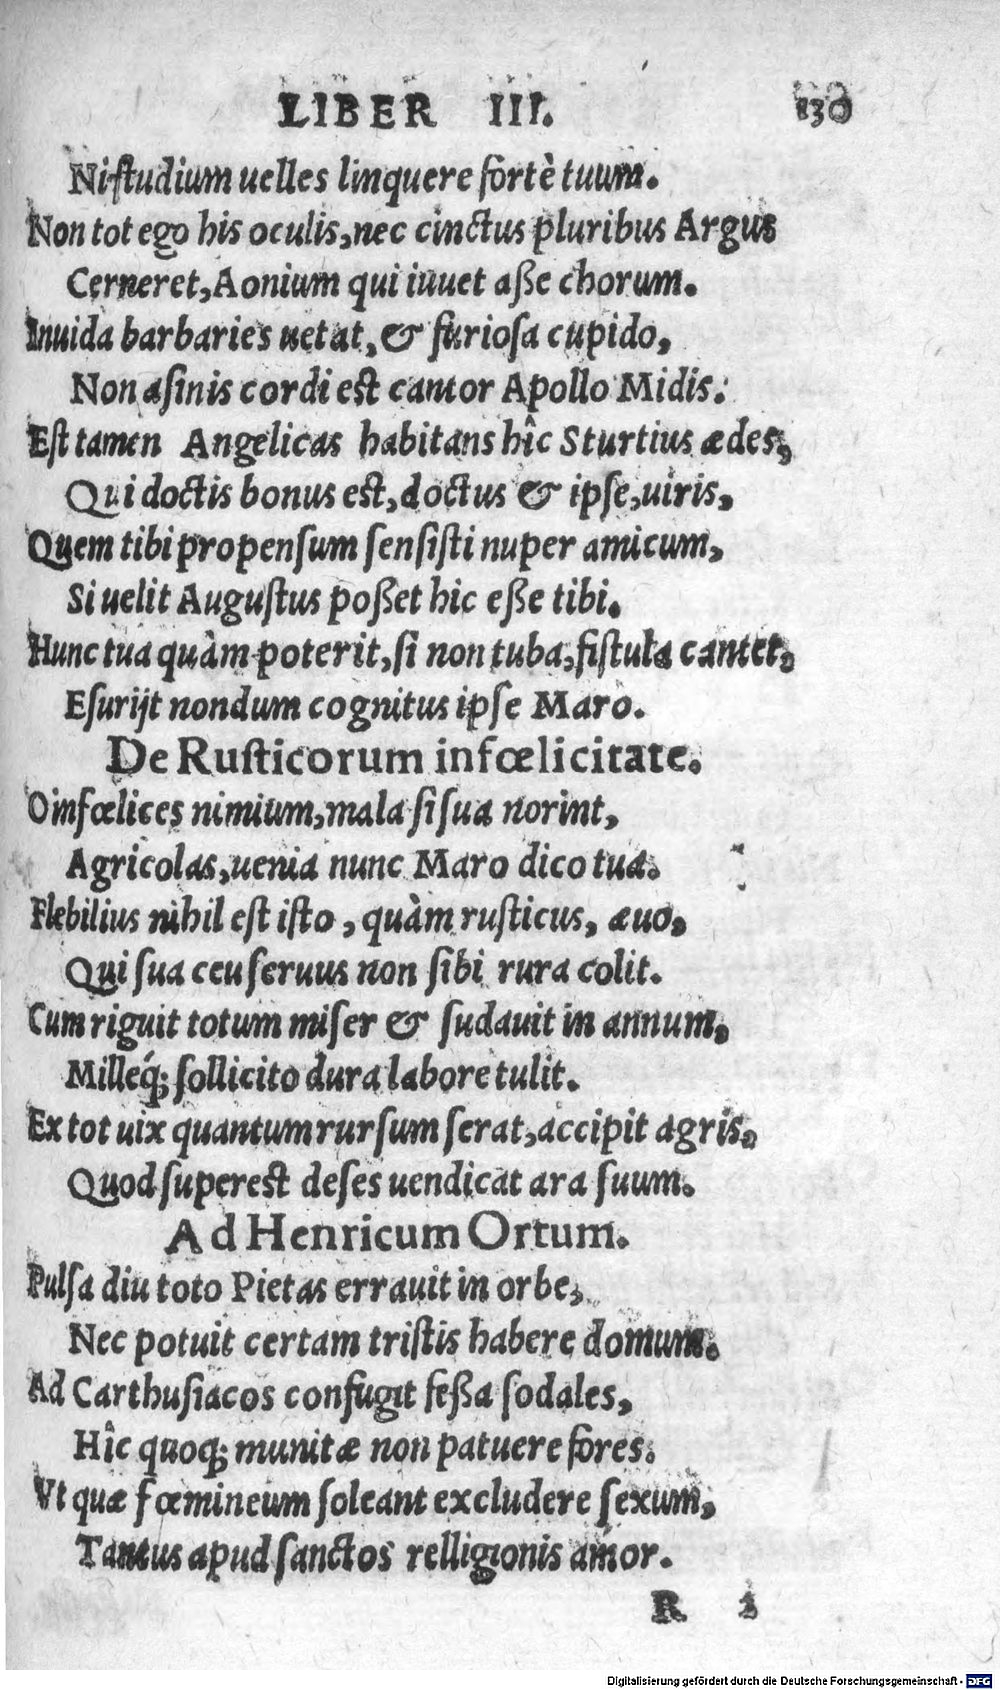 LIBER III. 130
Ni studium uelles linquere fortè tuum.
Non tot ego his oculis, nec cinctus pluribus Argus
Cerneret, Aonium qui iuuet aße chorum.
Inuida barbaries uetat, & furiosa cupido,
Non asinis cordi est cantor Apollo Midis:
Est tamen Angelicas habitans hîc Sturtius ædes,
Qui doctis bonus est, doctus & ipse, uiris,
Quem tibi propensum sensisti nuper amicum,
Si uelit Augustus poßet hic eße tibi.
Hunc tua quàm poterit, si non tuba, fistula cantet,
Esurijt nondum cognitus ipse Maro.
De Rusticorum infœlicitate.
O infœlices nimium, mala si sua norint,
Agricolas, uenia nunc Maro dico tua.
Flebilius nihil est isto, quàm rusticus, æuo,
Qui sua ceu seruus non sibi rura colit.
Cum riguit totum miser & sudauit in annum,
Milleq́; sollicito dura labore tulit.
Ex tot uix quantum rursum serat, accipit agris,
Quod superest deses uendicat ara suum.
Ad Henricum Ortum.
Pulsa diu toto Pietas errauit in orbe,
Nec potuit certam tristis habere domum.
Ad Carthusiacos confugit feßa sodales,
Hîc quoq; munitæ non patuere fores.
Vt quæ fœmineum soleant excludere sexum,
Tantus apud sanctos relligionis amor.
R 2
Digitalisierung gefördert durch die Deutsche Forschungsgemeinschaft - DFG